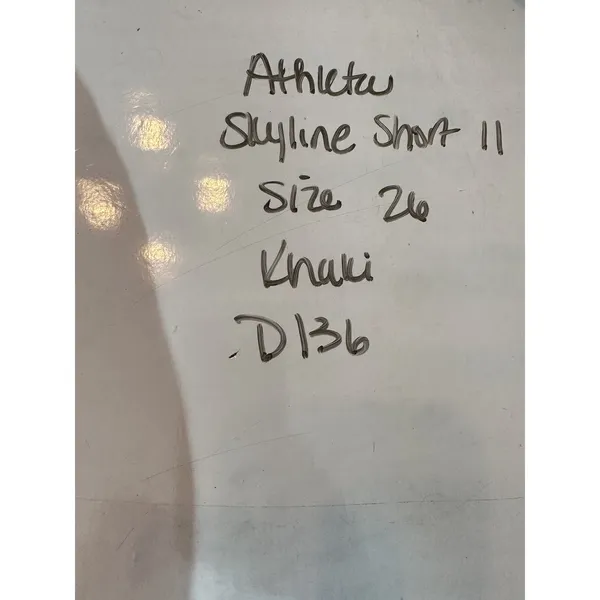 Athleta
Skyline Short 11
Size 26
Khaki
D136